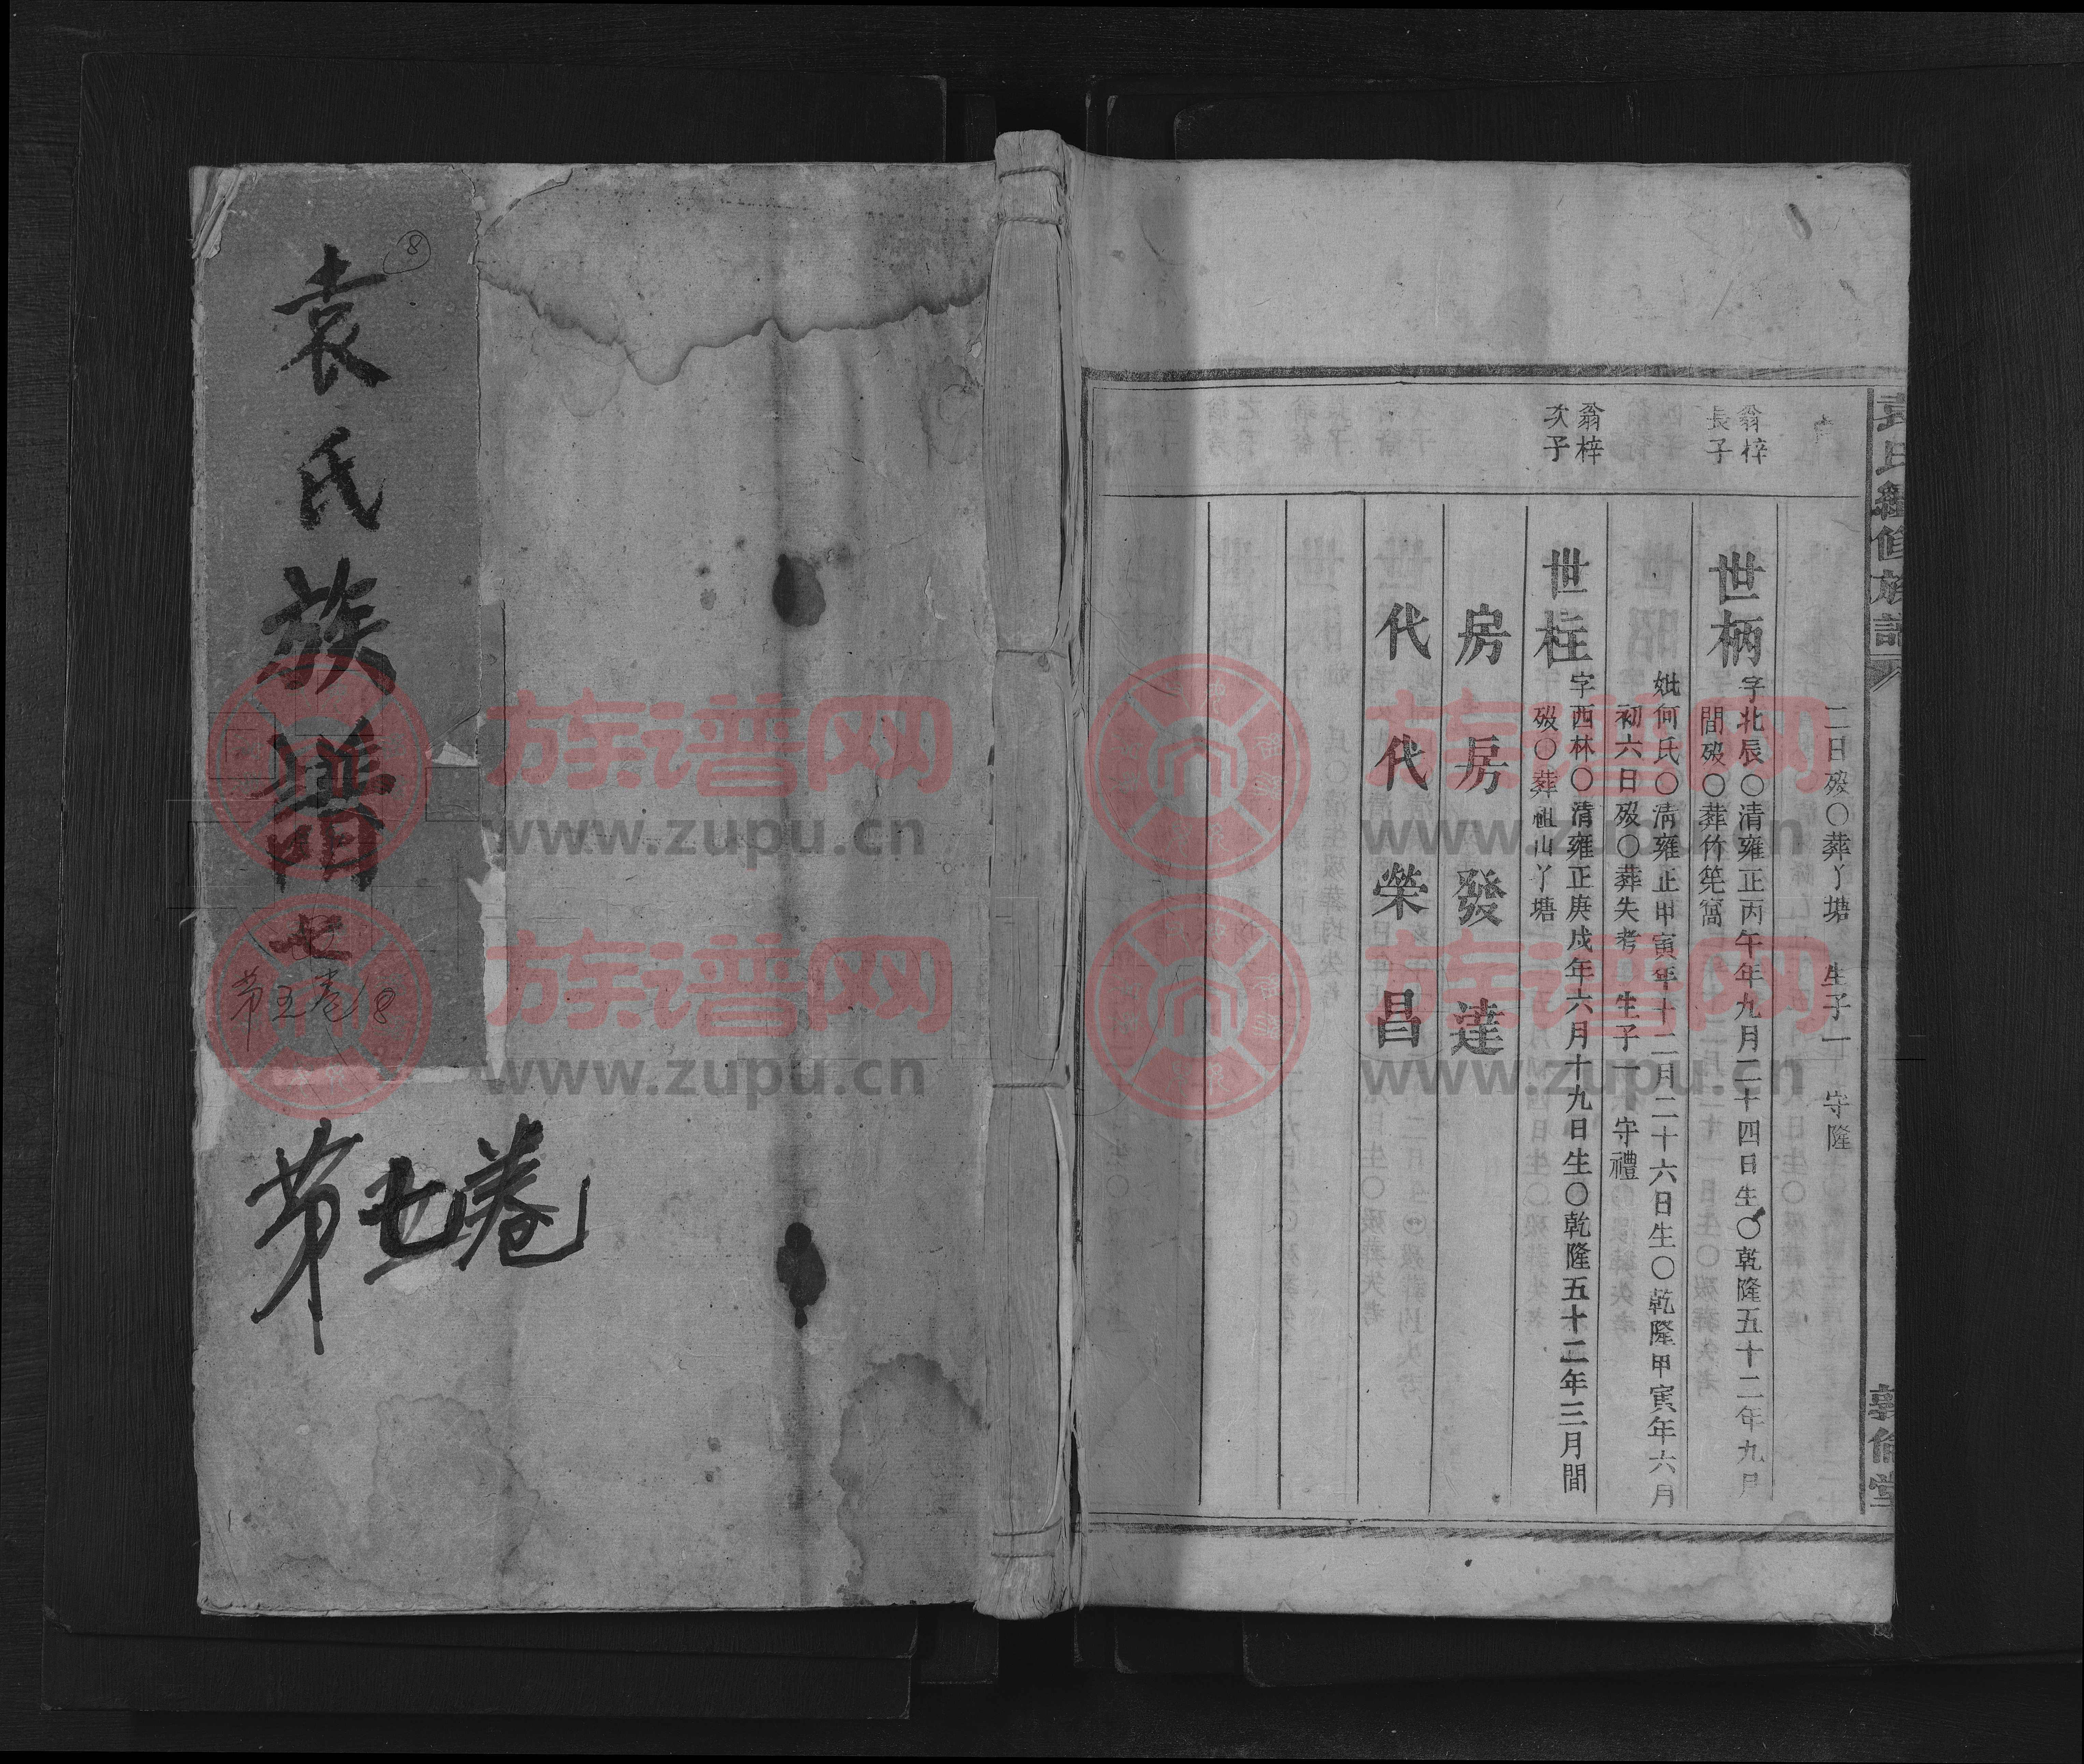 袁氏續修族譜
敦倫堂
二日歿○葬丫塘 生子一 守隆
翁梓
長子
世柄
字北辰○清雍正丙午年九月二十四日生○乾隆五十二年九月
間歿○葬竹篼窩
妣何氏○清雍正甲寅年十二月二十六日生○乾隆甲寅年六月
初六日歿○葬失考 生子一 守禮
翁梓
次子
世柱
字西林○清雍正庚戌年六月十九日生○乾隆五十二年三月間
歿○葬祖山丫塘
房房發達
代代榮昌
8
袁氏族譜
七
第五卷8
第七卷
族谱网
www.zupu.cn
族谱网
www.zupu.cn
族谱网
www.zupu.cn
族谱网
www.zupu.cn